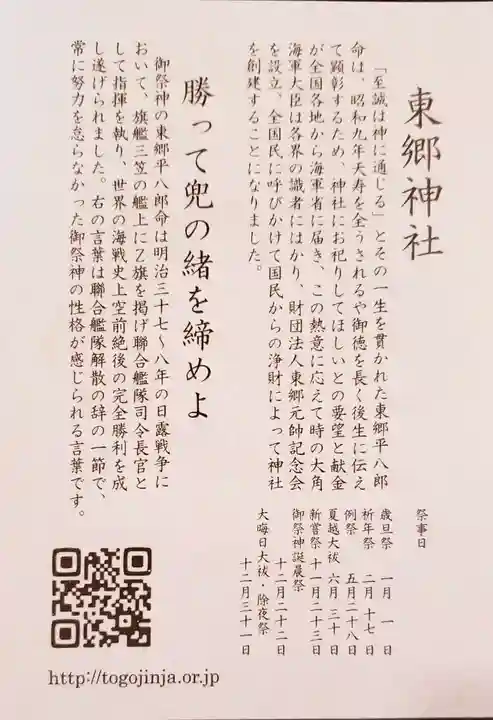 東郷神社
「至誠は神に通じる」とその一生を貫かれた東郷平八郎
命は、昭和九年天寿を全うされるや御徳を長く後生に伝え
て顕彰するため、神社にお祀りしてほしいとの要望と献金
が全国各地から海軍省に届き、この熱意に応えて時の大角
海軍大臣は各界の識者にはかり、財団法人東郷元帥記念会
を設立、全国民に呼びかけて国民からの浄財によって神社
を創建することになりました。
勝って兜の緒を締めよ
御祭神の東郷平八郎命は明治三十七〜八年の日露戦争に
おいて、旗艦三笠の艦上にZ旗を掲げ聯合艦隊司令長官と
して指揮を執り、世界の海戦史上空前絶後の完全勝利を成
し遂げられました。右の言葉は聯合艦隊解散の辞の一節で、
常に努力を怠らなかった御祭神の性格が感じられる言葉です。
祭事日
歳旦祭 一月 一日
祈年祭 二月 十七日
例祭 五月二十八日
夏越大祓 六月三十日
新嘗祭 十一月二十三日
御祭神誕晨祭 十二月二十二日
大晦日大祓・除夜祭 十二月三十一日
http://togojinja.or.jp